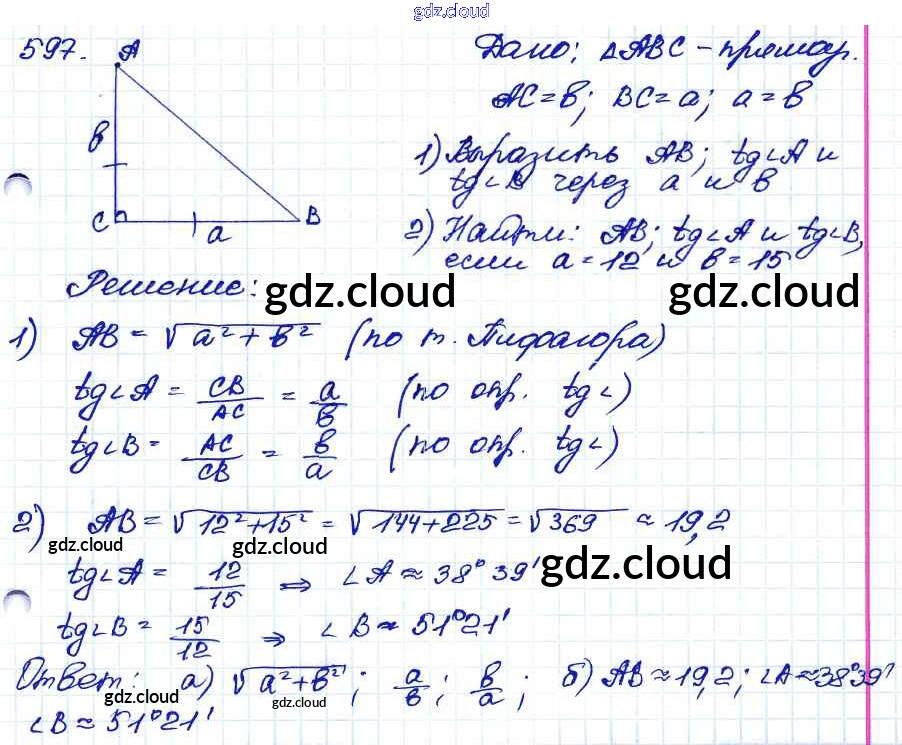 gdz.cloud
597. A
Дано: △ABC – прямоуг.
AC = в; BC = a; a = в
в
1) Выразить AB; tg∠A и
tg∠B через a и в
C a B
2) Найти: AB; tg∠A и tg∠B,
если a = 12 и в = 15
Решение:
gdz.cloud gdz.cloud
1) AB = √(a² + в²) (по т. Пифагора)
tg∠A = CB/AC = a/в (по опр. tg∠)
tg∠B = AC/CB = в/a (по опр. tg∠)
2) AB = √(12² + 15²) = √(144 + 225) = √369 ≈ 19,2
gdz.cloud gdz.cloud gdz.cloud
tg∠A = 12/15 ⇒ ∠A ≈ 38°39'
tg∠B = 15/12 ⇒ ∠B ≈ 51°21'
Ответ: а) √(a² + в²); a/в; в/a; б) AB ≈ 19,2; ∠A ≈ 38°39'
gdz.cloud gdz.cloud gdz.cloud
∠B ≈ 51°21'